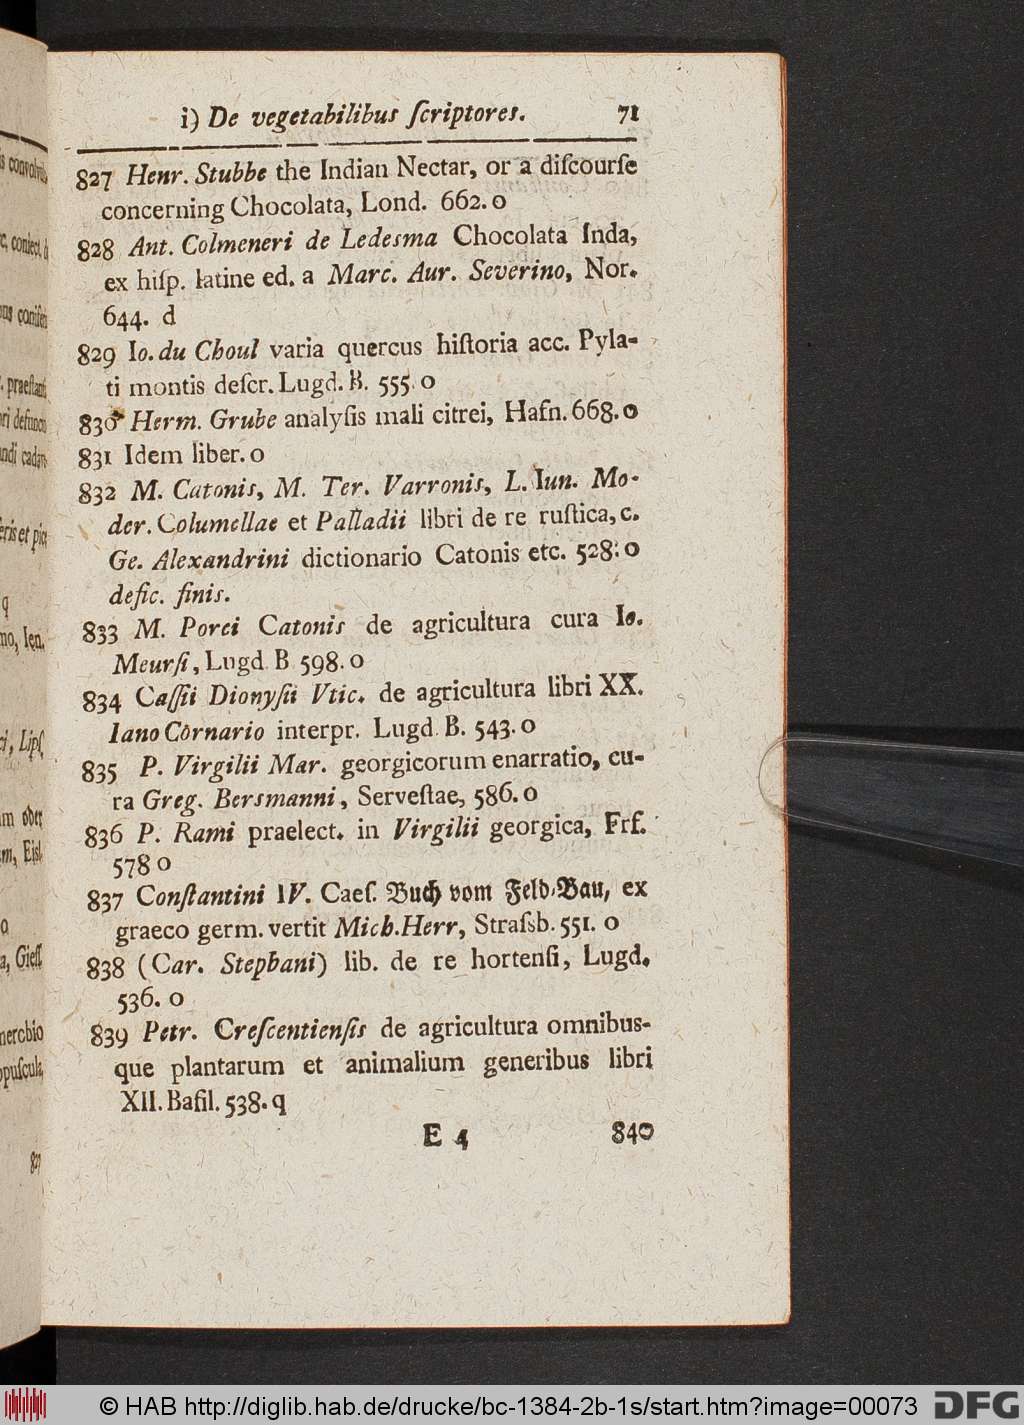 i) De vegetabilibus ſcriptores. 71
827 Henr. Stubbe the Indian Nectar, or a diſcourſe
concerning Chocolata, Lond. 662. o
828 Ant. Colmeneri de Ledesma Chocolata Inda,
ex hiſp. latine ed. a Marc. Aur. Severino, Nor.
644. d
829 Io. du Choul varia quercus hiſtoria acc. Pyla-
ti montis deſcr. Lugd. B. 555. o
830 Herm. Grube analyſis mali citrei, Hafn. 668. o
831 Idem liber. o
832 M. Catonis, M. Ter. Varronis, L. Iun. Mo-
der. Columellae et Palladii libri de re ruſtica, c.
Ge. Alexandrini dictionario Catonis etc. 528. o
defic. finis.
833 M. Porci Catonis de agricultura cura Io.
Meurſi, Lugd B 598. o
834 Caſſii Dionyſii Vtic. de agricultura libri XX.
Iano Cornario interpr. Lugd. B. 543. o
835 P. Virgilii Mar. georgicorum enarratio, cu-
ra Greg. Bersmanni, Serveſtae, 586. o
836 P. Rami praelect. in Virgilii georgica, Frf.
578 o
837 Conſtantini IV. Caeſ. Buch vom Feld-Bau, ex
graeco germ. vertit Mich. Herr, Straſsb. 551. o
838 (Car. Stephani) lib. de re hortenſi, Lugd.
536. o
839 Petr. Creſcentienſis de agricultura omnibus-
que plantarum et animalium generibus libri
XII. Baſil. 538. q
E 4 840
© HAB http://diglib.hab.de/drucke/bc-1384-2b-1s/start.htm?image=00073 DFG